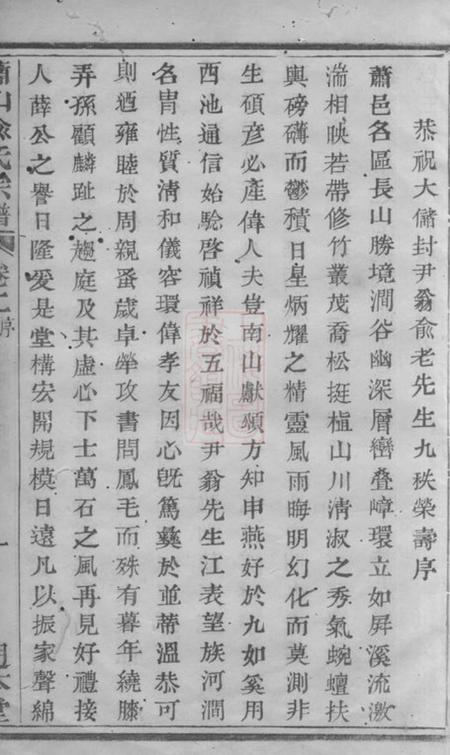 恭祝大儲封尹翁俞老先生九秩榮壽序
蕭邑名區長山勝境澗谷幽深層巒叠嶂環立如屏溪流激
湍相映若帶修竹叢茂喬松挺植山川清淑之秀氣蜿蟺扶
輿磅礴而鬱積日皇炳耀之精靈風雨晦明幻化而莫測非
生碩彥必產偉人夫豈南山獻頌方知申燕好於九如奚用
西池通信始驗啓禎祥於五福哉尹翁先生江表望族河澗
名胄性質清和儀容環偉孝友因心旣篤彝於並蒂溫恭可
則迺雍睦於周親蚤歲卓犖攻書問鳳毛而殊有暮年繞膝
弄孫顧麟趾之趨庭及其虛心下士萬石之風再見好禮接
人薛公之譽日隆爰是堂構宏開規模日遠凡以振家聲綿
蕭山俞氏宗譜 卷之 序 一